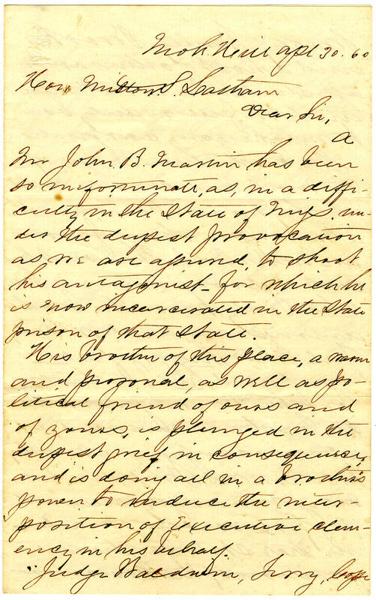 Mok Hill Apl 30. 60
Hon Milton S. Latham
Dear Sir,
A
Mr John B. Martin has been
so unfortunate, as, in a diffi-
culty in the State of Miss. un-
der the deepest provocation
as we are assured, to shoot
his antagonist - for which he
is now incarcerated in the State
prison of that State.
His brother of this place, a warm
and personal, as well as po-
litical friend of ours and
of yours, is plunged in the
deepest grief in consequence,
and is doing all in a brother's
power to induce the inter-
position of Executive clem-
ency in his behalf.
Judge Baldwin, Terry, Cope